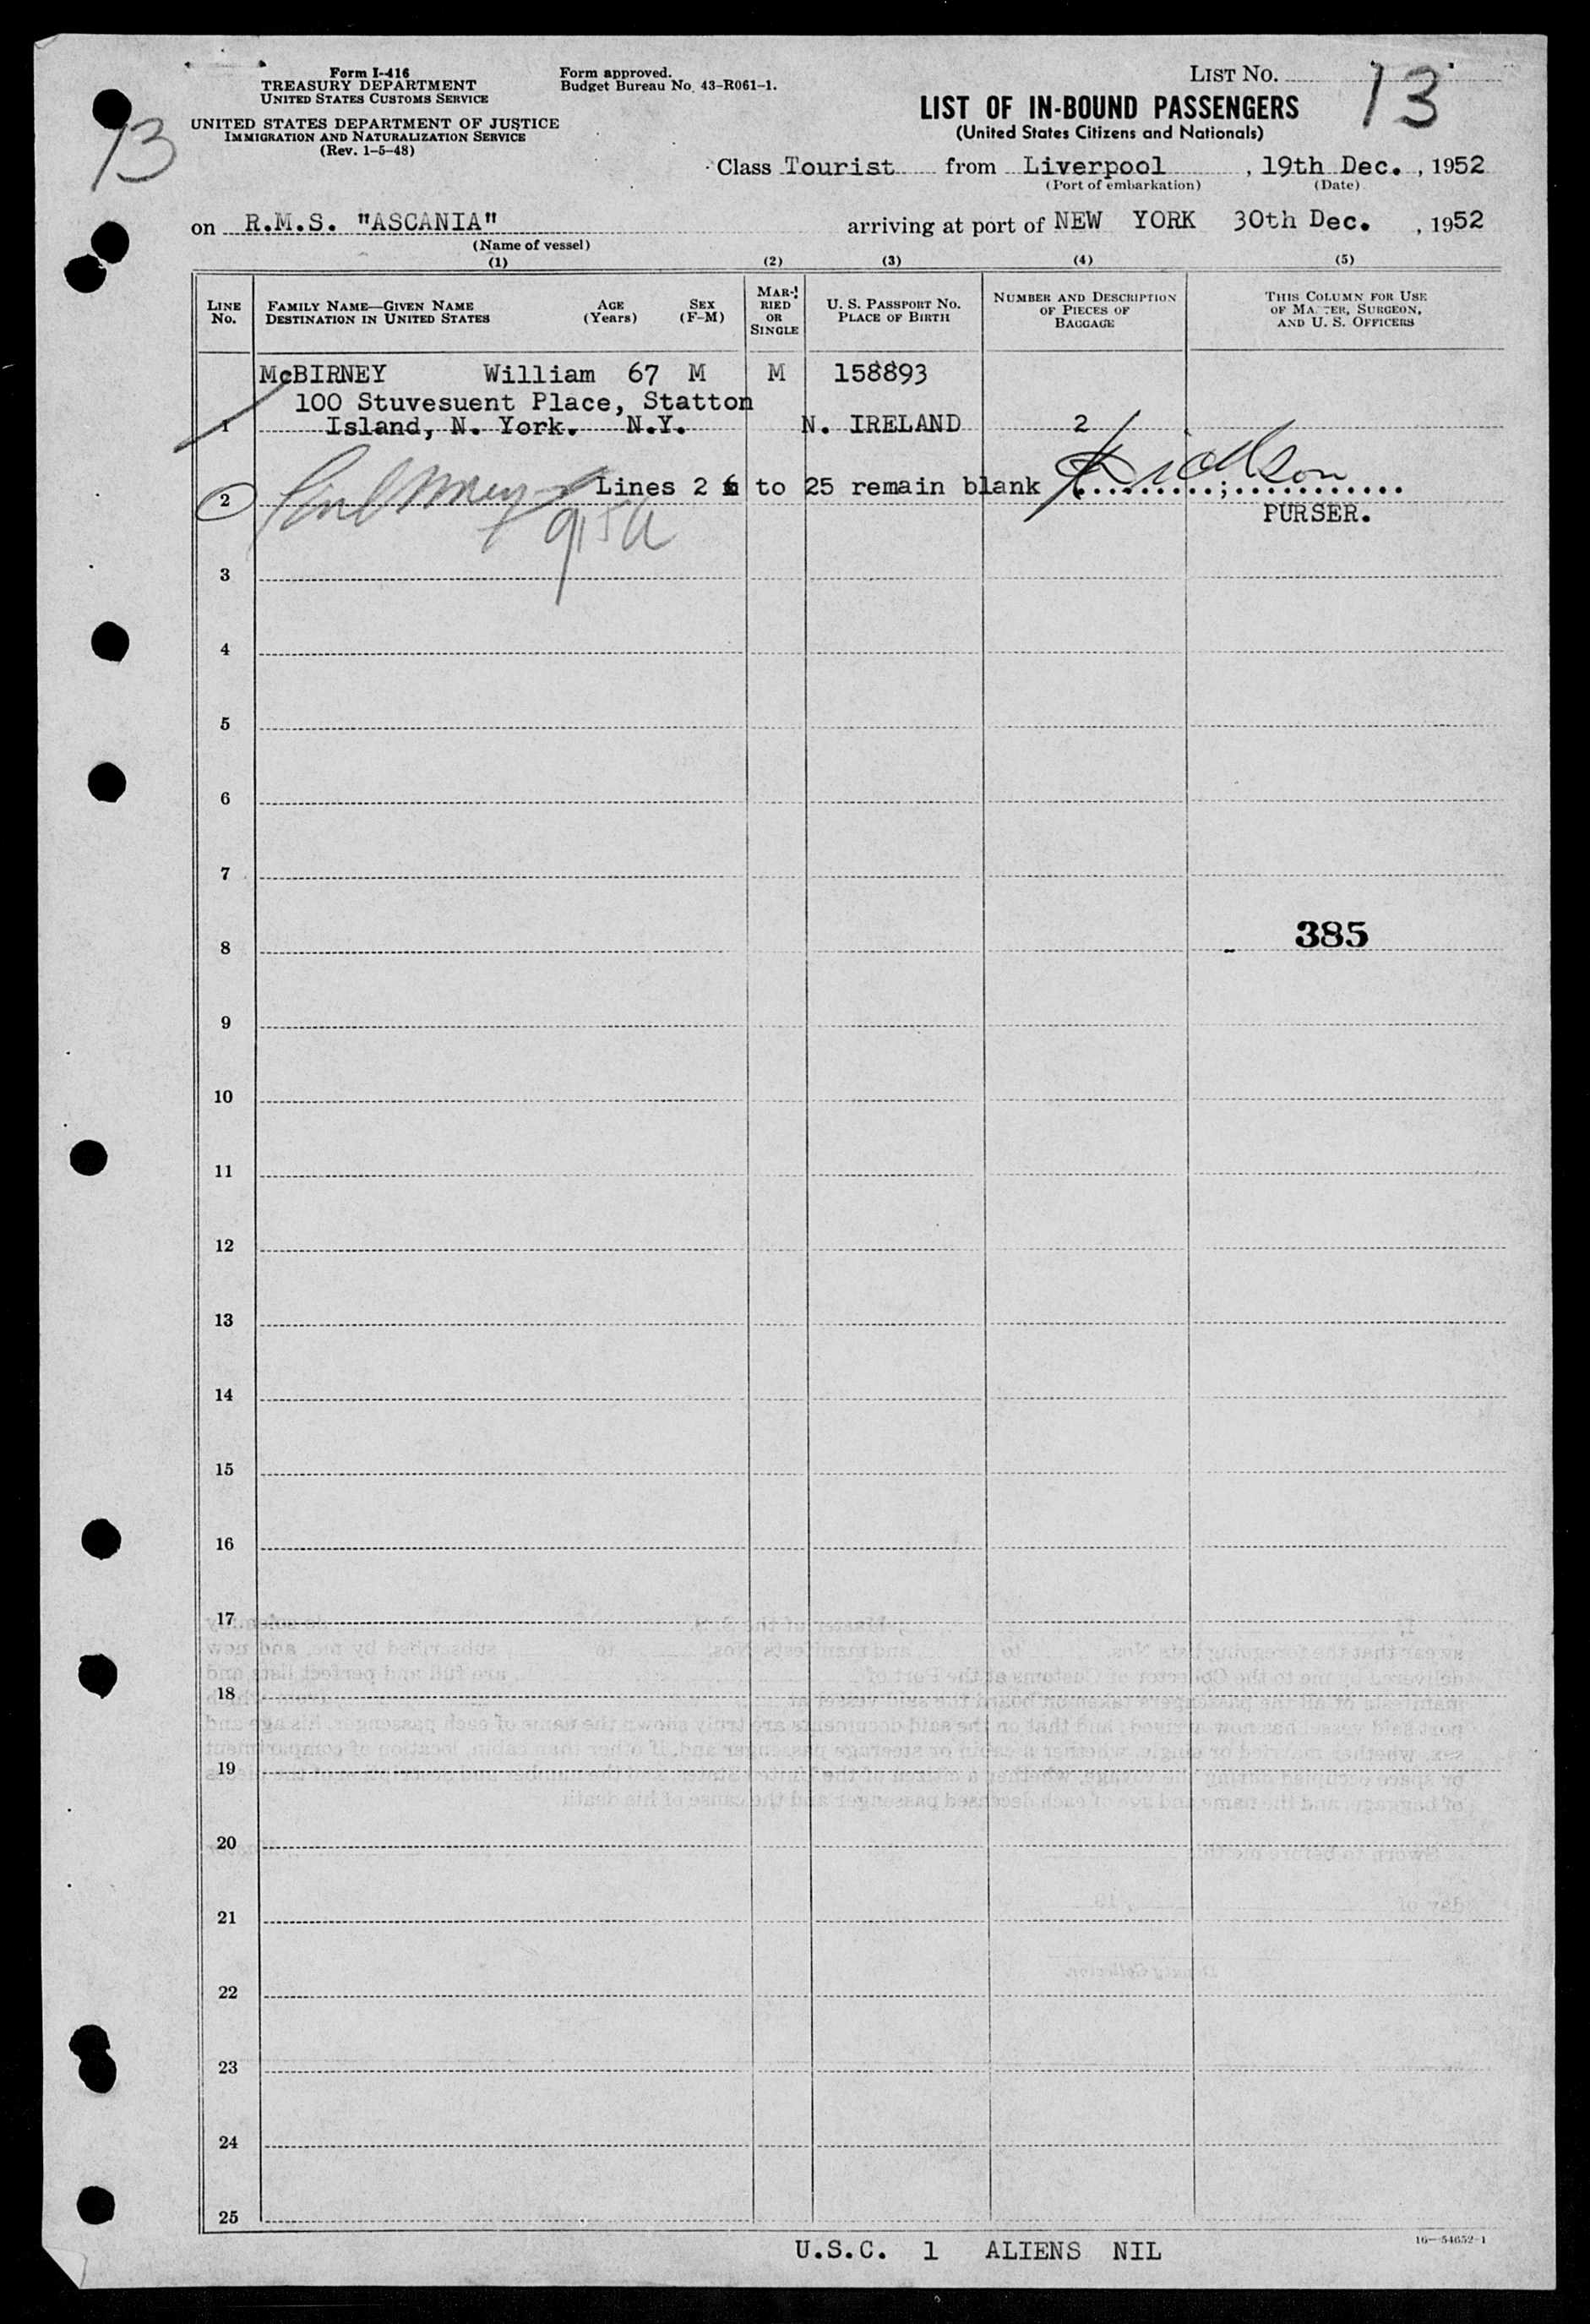 Form I-416
TREASURY DEPARTMENT
UNITED STATES CUSTOMS SERVICE
UNITED STATES DEPARTMENT OF JUSTICE
IMMIGRATION AND NATURALIZATION SERVICE
(Rev. 1-5-48)
Form approved.
Budget Bureau No. 43-R061-1.
LIST No. 13
13
LIST OF IN-BOUND PASSENGERS
(United States Citizens and Nationals)
Class Tourist from Liverpool, 19th Dec., 1952
(Port of embarkation) (Date)
on R.M.S. "ASCANIA" arriving at port of NEW YORK 30th Dec. , 1952
(Name of vessel)
(1) (2) (3) (4) (5)
LINE No.
FAMILY NAME—GIVEN NAME DESTINATION IN UNITED STATES
AGE (Years)
SEX (F-M)
MARRIED OR SINGLE
U. S. PASSPORT No. PLACE OF BIRTH
NUMBER AND DESCRIPTION OF PIECES OF BAGGAGE
THIS COLUMN FOR USE OF MASTER, SURGEON, AND U. S. OFFICERS
McBIRNEY William 67 M M 158893
100 Stuvesuent Place, Statton
1 Island, N. York. N.Y. N. IRELAND 2
2 Lines 2 to 25 remain blank
PURSER.
3
4
5
6
7
8 385
9
10
11
12
13
14
15
16
17
18
19
20
21
22
23
24
25
U.S.C. 1 ALIENS NIL
16—54652-1